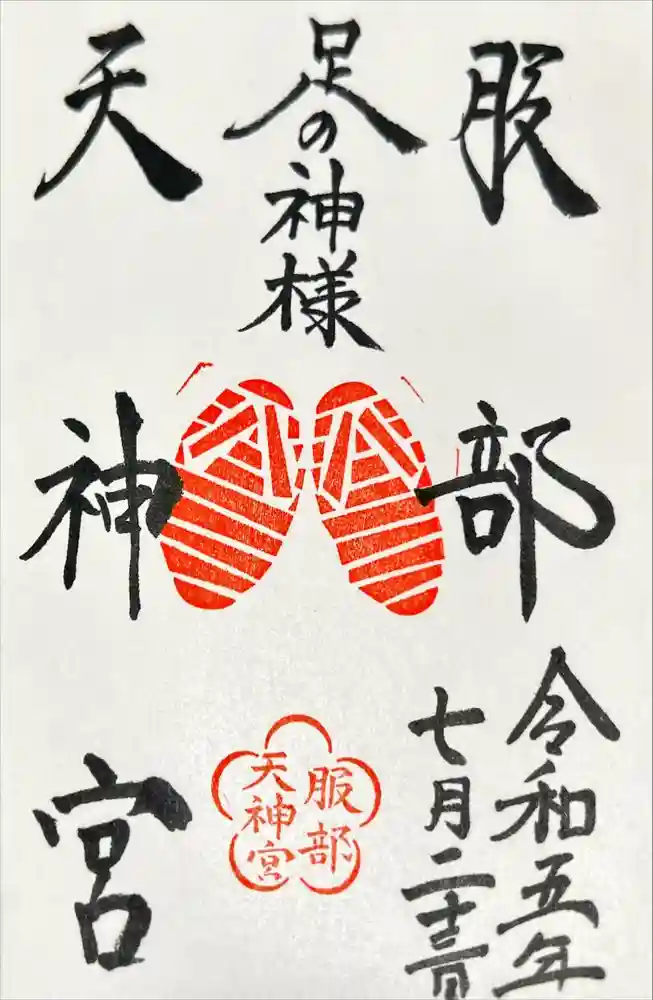 服部
足の神様
天神宮
令和五年
七月二十三日
服部
天神宮